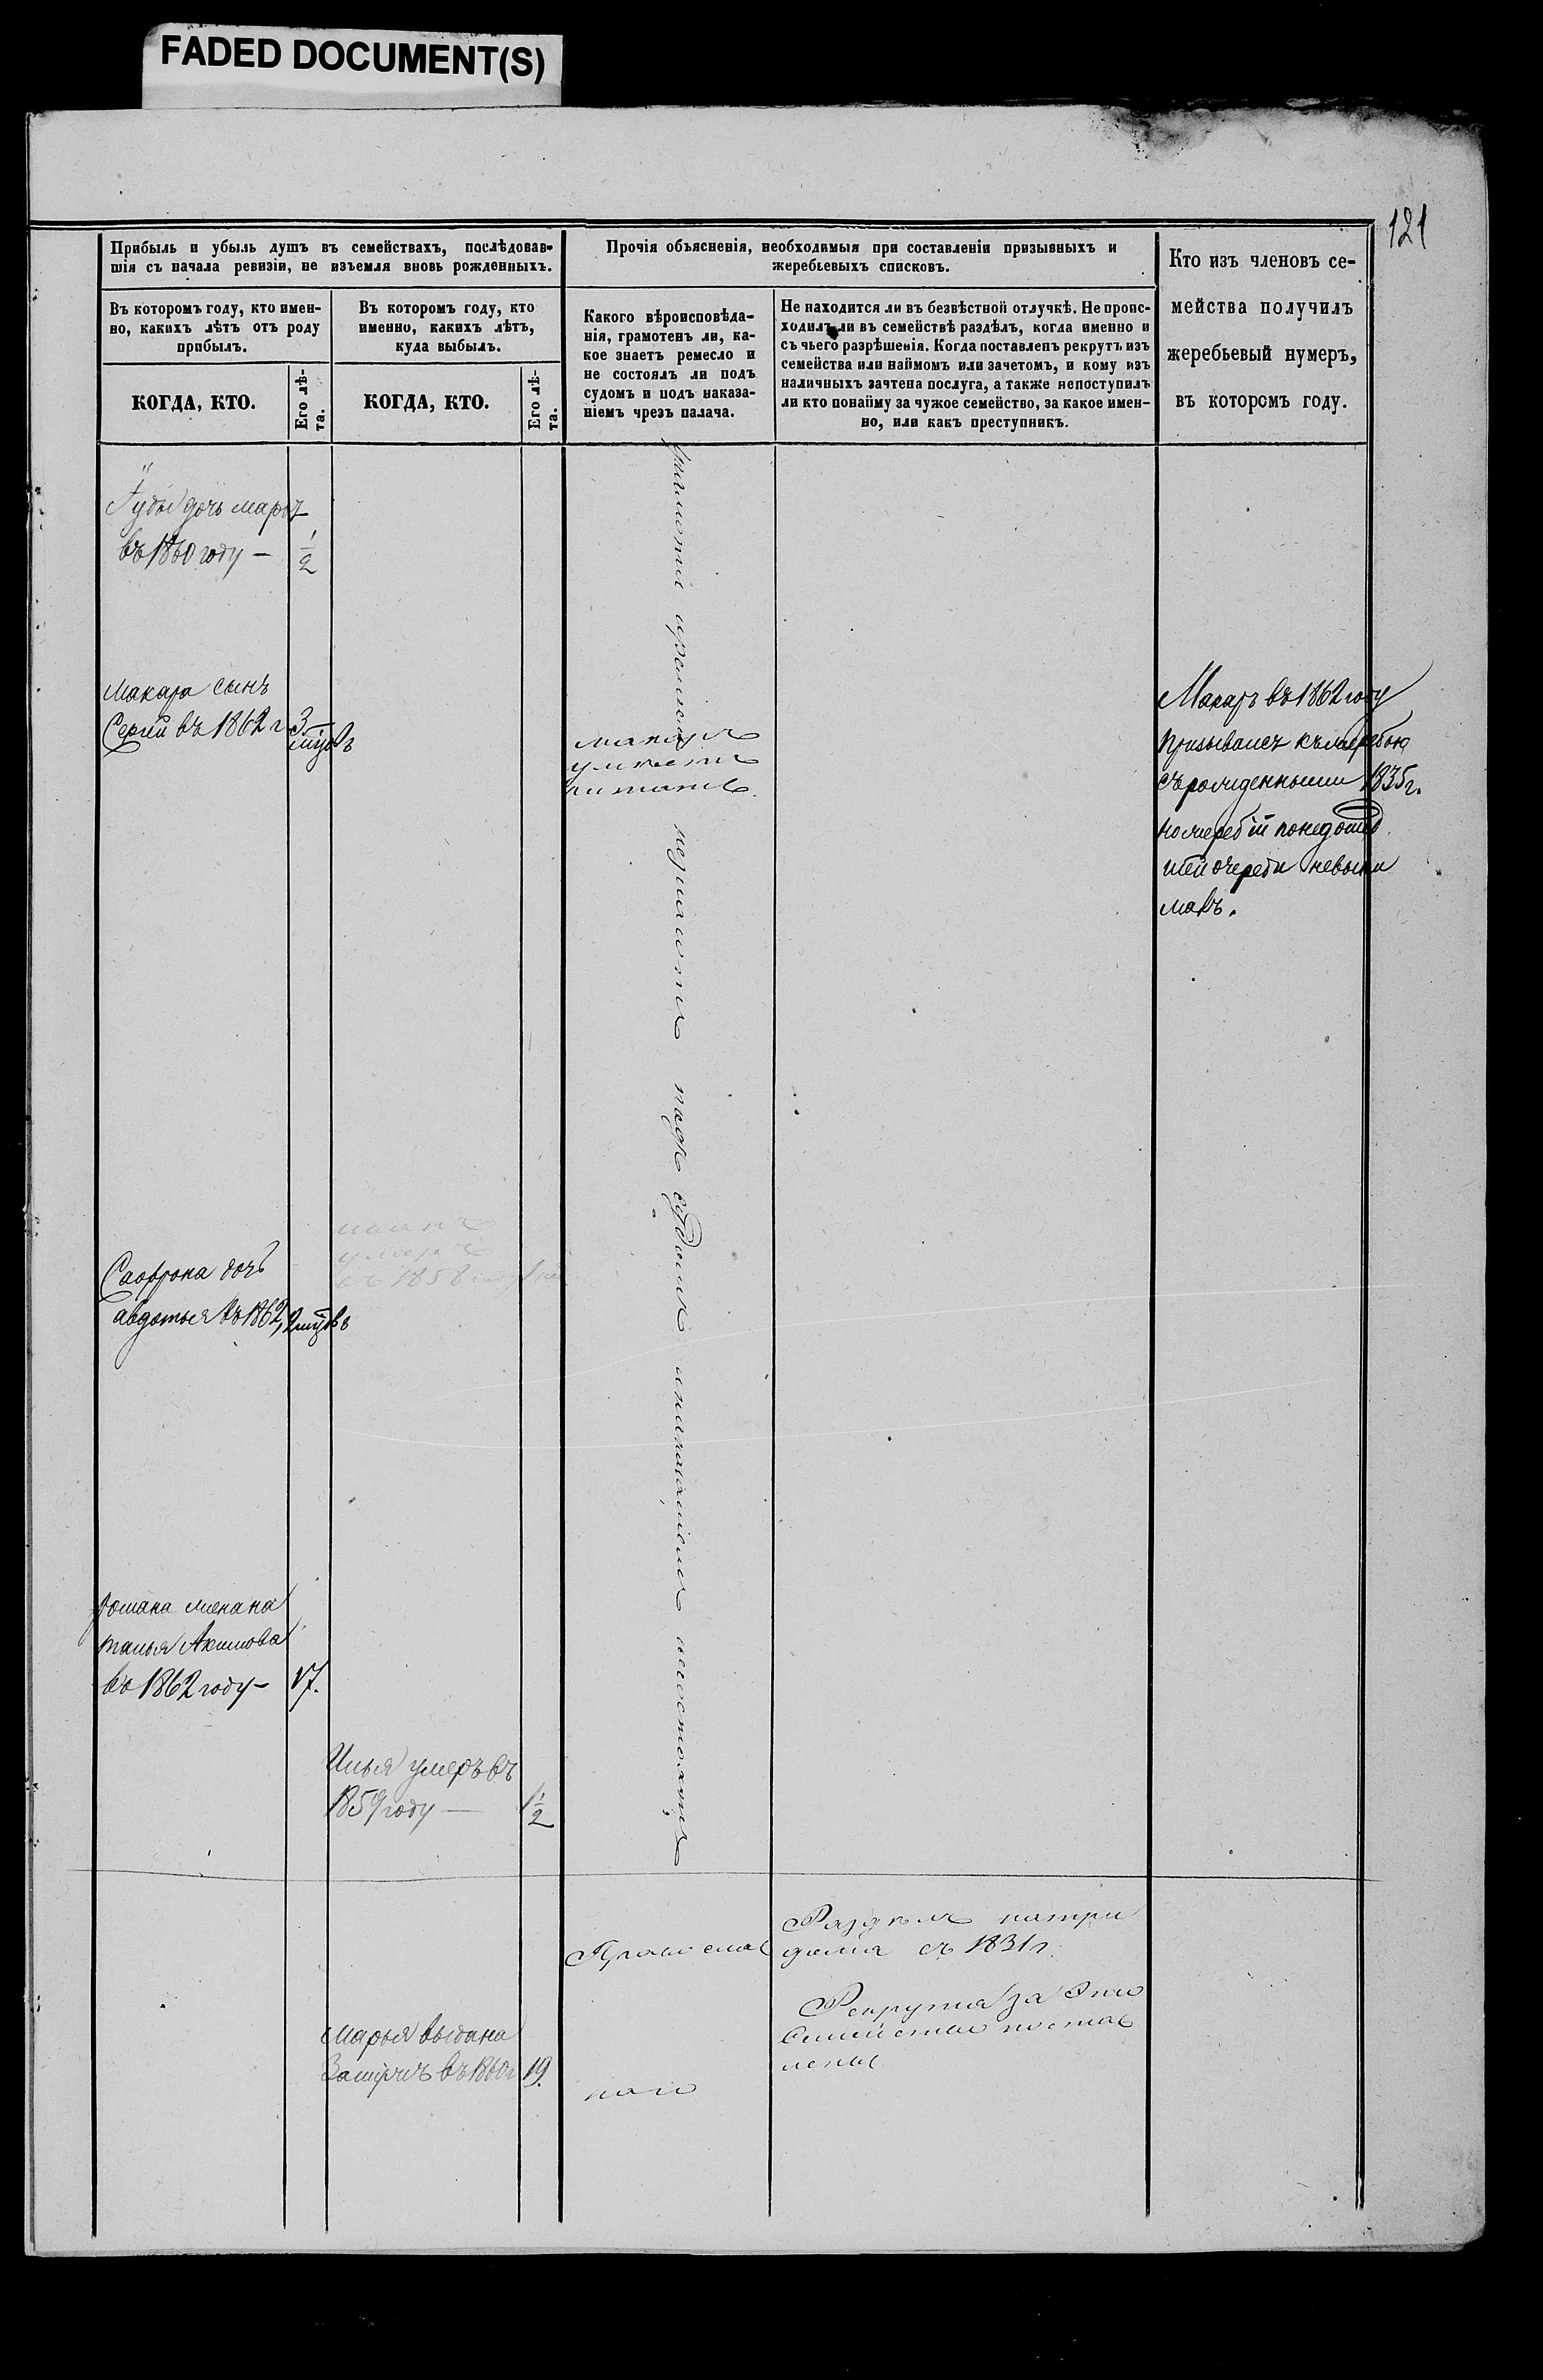 FADED DOCUMENT(S)
121
Прибыль и убыль душъ въ семействахъ, послѣдовав-
шія съ начала ревизіи, не изъемля вновь рожденныхъ.
Въ которомъ году, кто имен-
но, какихъ лѣтъ отъ роду
прибылъ.
КОГДА, КТО.
Его лѣ-
та.
Въ которомъ году, кто
именно, какихъ лѣтъ,
куда выбылъ.
КОГДА, КТО.
Его лѣ-
та.
Прочія объясненія, необходимыя при составленіи призывныхъ и
жеребьевыхъ списковъ.
Какого вѣроисповѣда-
нія, грамотенъ ли, ка-
кое знаетъ ремесло и
не состоялъ ли подъ
судомъ и подъ наказа-
ніемъ чрезъ палача.
Не находится ли въ безвѣстной отлучкѣ. Не проис-
ходилъ ли въ семействѣ раздѣлъ, когда именно и
съ чьего разрѣшенія. Когда поставленъ рекрутъ изъ
семейства или наймомъ или зачетомъ, и кому изъ
наличныхъ зачтена послуга, а также непоступилъ
ли кто понайму за чужое семейство, за какое имен-
но, или какъ преступникъ.
Кто изъ членовъ се-
мейства получилъ
жеребьевый нумеръ,
въ которомъ году.
дочь марья
въ 1860 году — 1/2
Макара сынъ
Сергѣй въ 1862 г. 3
макаръ
умѣетъ
читать
подъ судомъ
Макаръ въ 1862 году
призывался къ жеребью
съ рожденными 1835 г.
но жеребій понедошед
шей очереди невыни
малъ.
умеръ
въ 1858 году
Саофрона дочь
авдотья въ 1862, 2
Романа жена на
талья Акимова
въ 1862 году — 17.
Илья умеръ въ
1859 году — 1 1/2
Православ
наго
Раздѣлъ натри
дома съ 1831 г.
Рекрута за это
Семейство постав
лены
Марья выдана
Замужъ въ 1860 г 19.